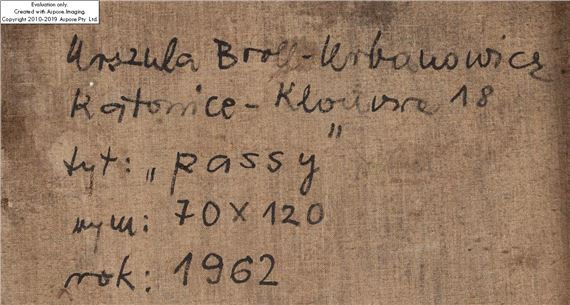 Evaluation only.
Created with Aspose.Imaging.
Copyright 2010-2019 Aspose Pty Ltd.
Urszula Broll-Urbanowicz
Katowice - 18
tyt: „passy"
wym: 70 x 120
rok: 1962